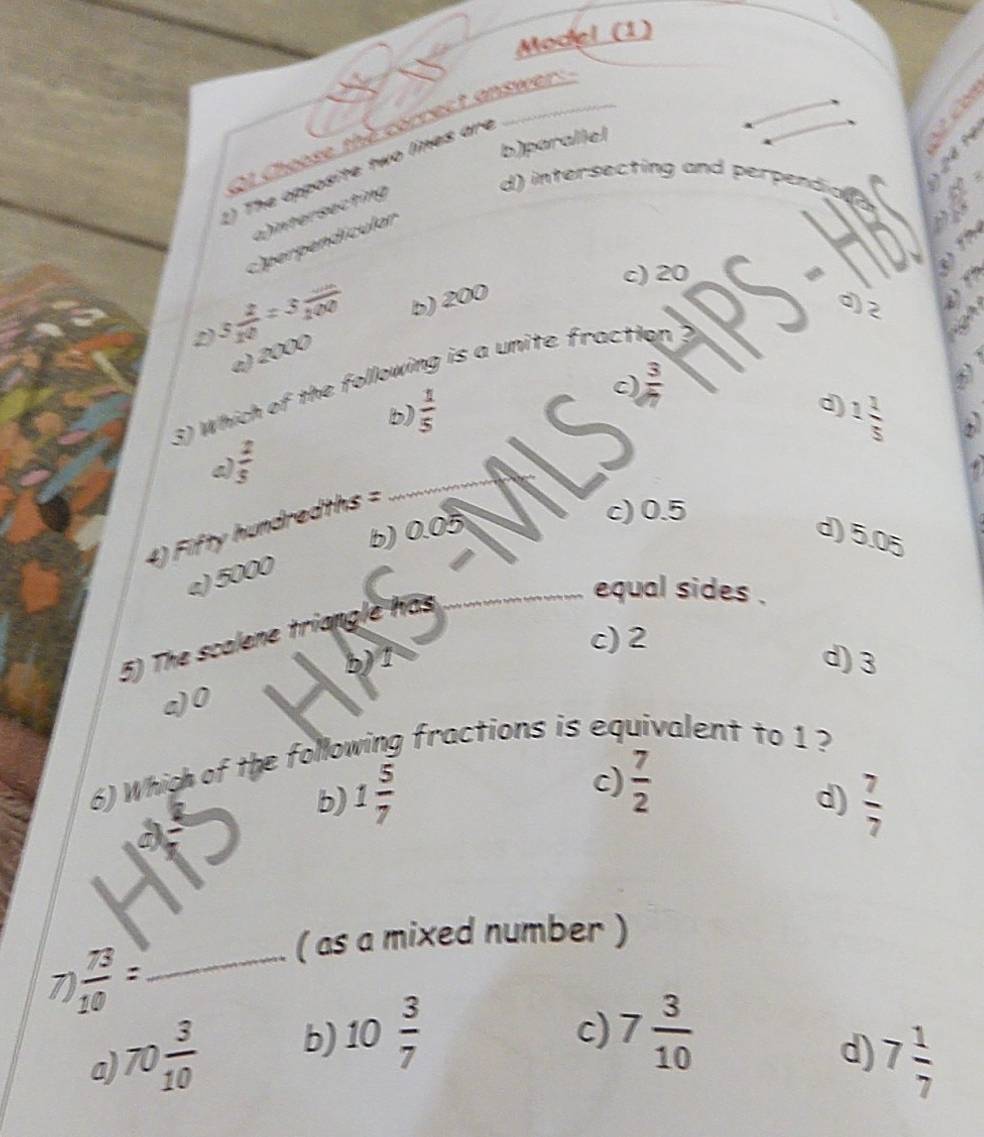 Model (1)
Q1 Choose the correct answer:-
1) The opposite two lines are ________
a)intersecting b)parallel
c)perpendicular d) intersecting and perpendicular
2) 3 2/10 = 3 ....../100
a) 2000 b) 200 c) 20 d) 2
3) Which of the following is a unite fraction ?
a) 2/5 b) 1/5 c) 3/7 d) 1 1/5
4) Fifty hundredths = ________
a) 5000 b) 0.05 c) 0.5 d) 5.05
5) The scalene triangle has ________ equal sides .
a) 0 b) 1 c) 2 d) 3
6) Which of the following fractions is equivalent to 1 ?
a) b) 1 5/7 c) 7/2 d) 7/7
7) 73/10 = ________ ( as a mixed number )
a) 70 3/10 b) 10 3/7 c) 7 3/10 d) 7 1/7
HIS HAS -MLS - HPS - HBS